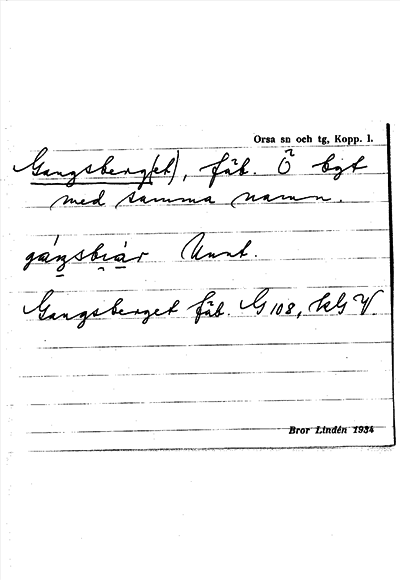 Orsa sn och tg, Kopp. l.
Gangsberg(et), fäb. Ö bgt
med samma namn.
gángsbiàr Unnt.
Gangsberget fäb. G 108, klG V.
Bror Lindén 1934